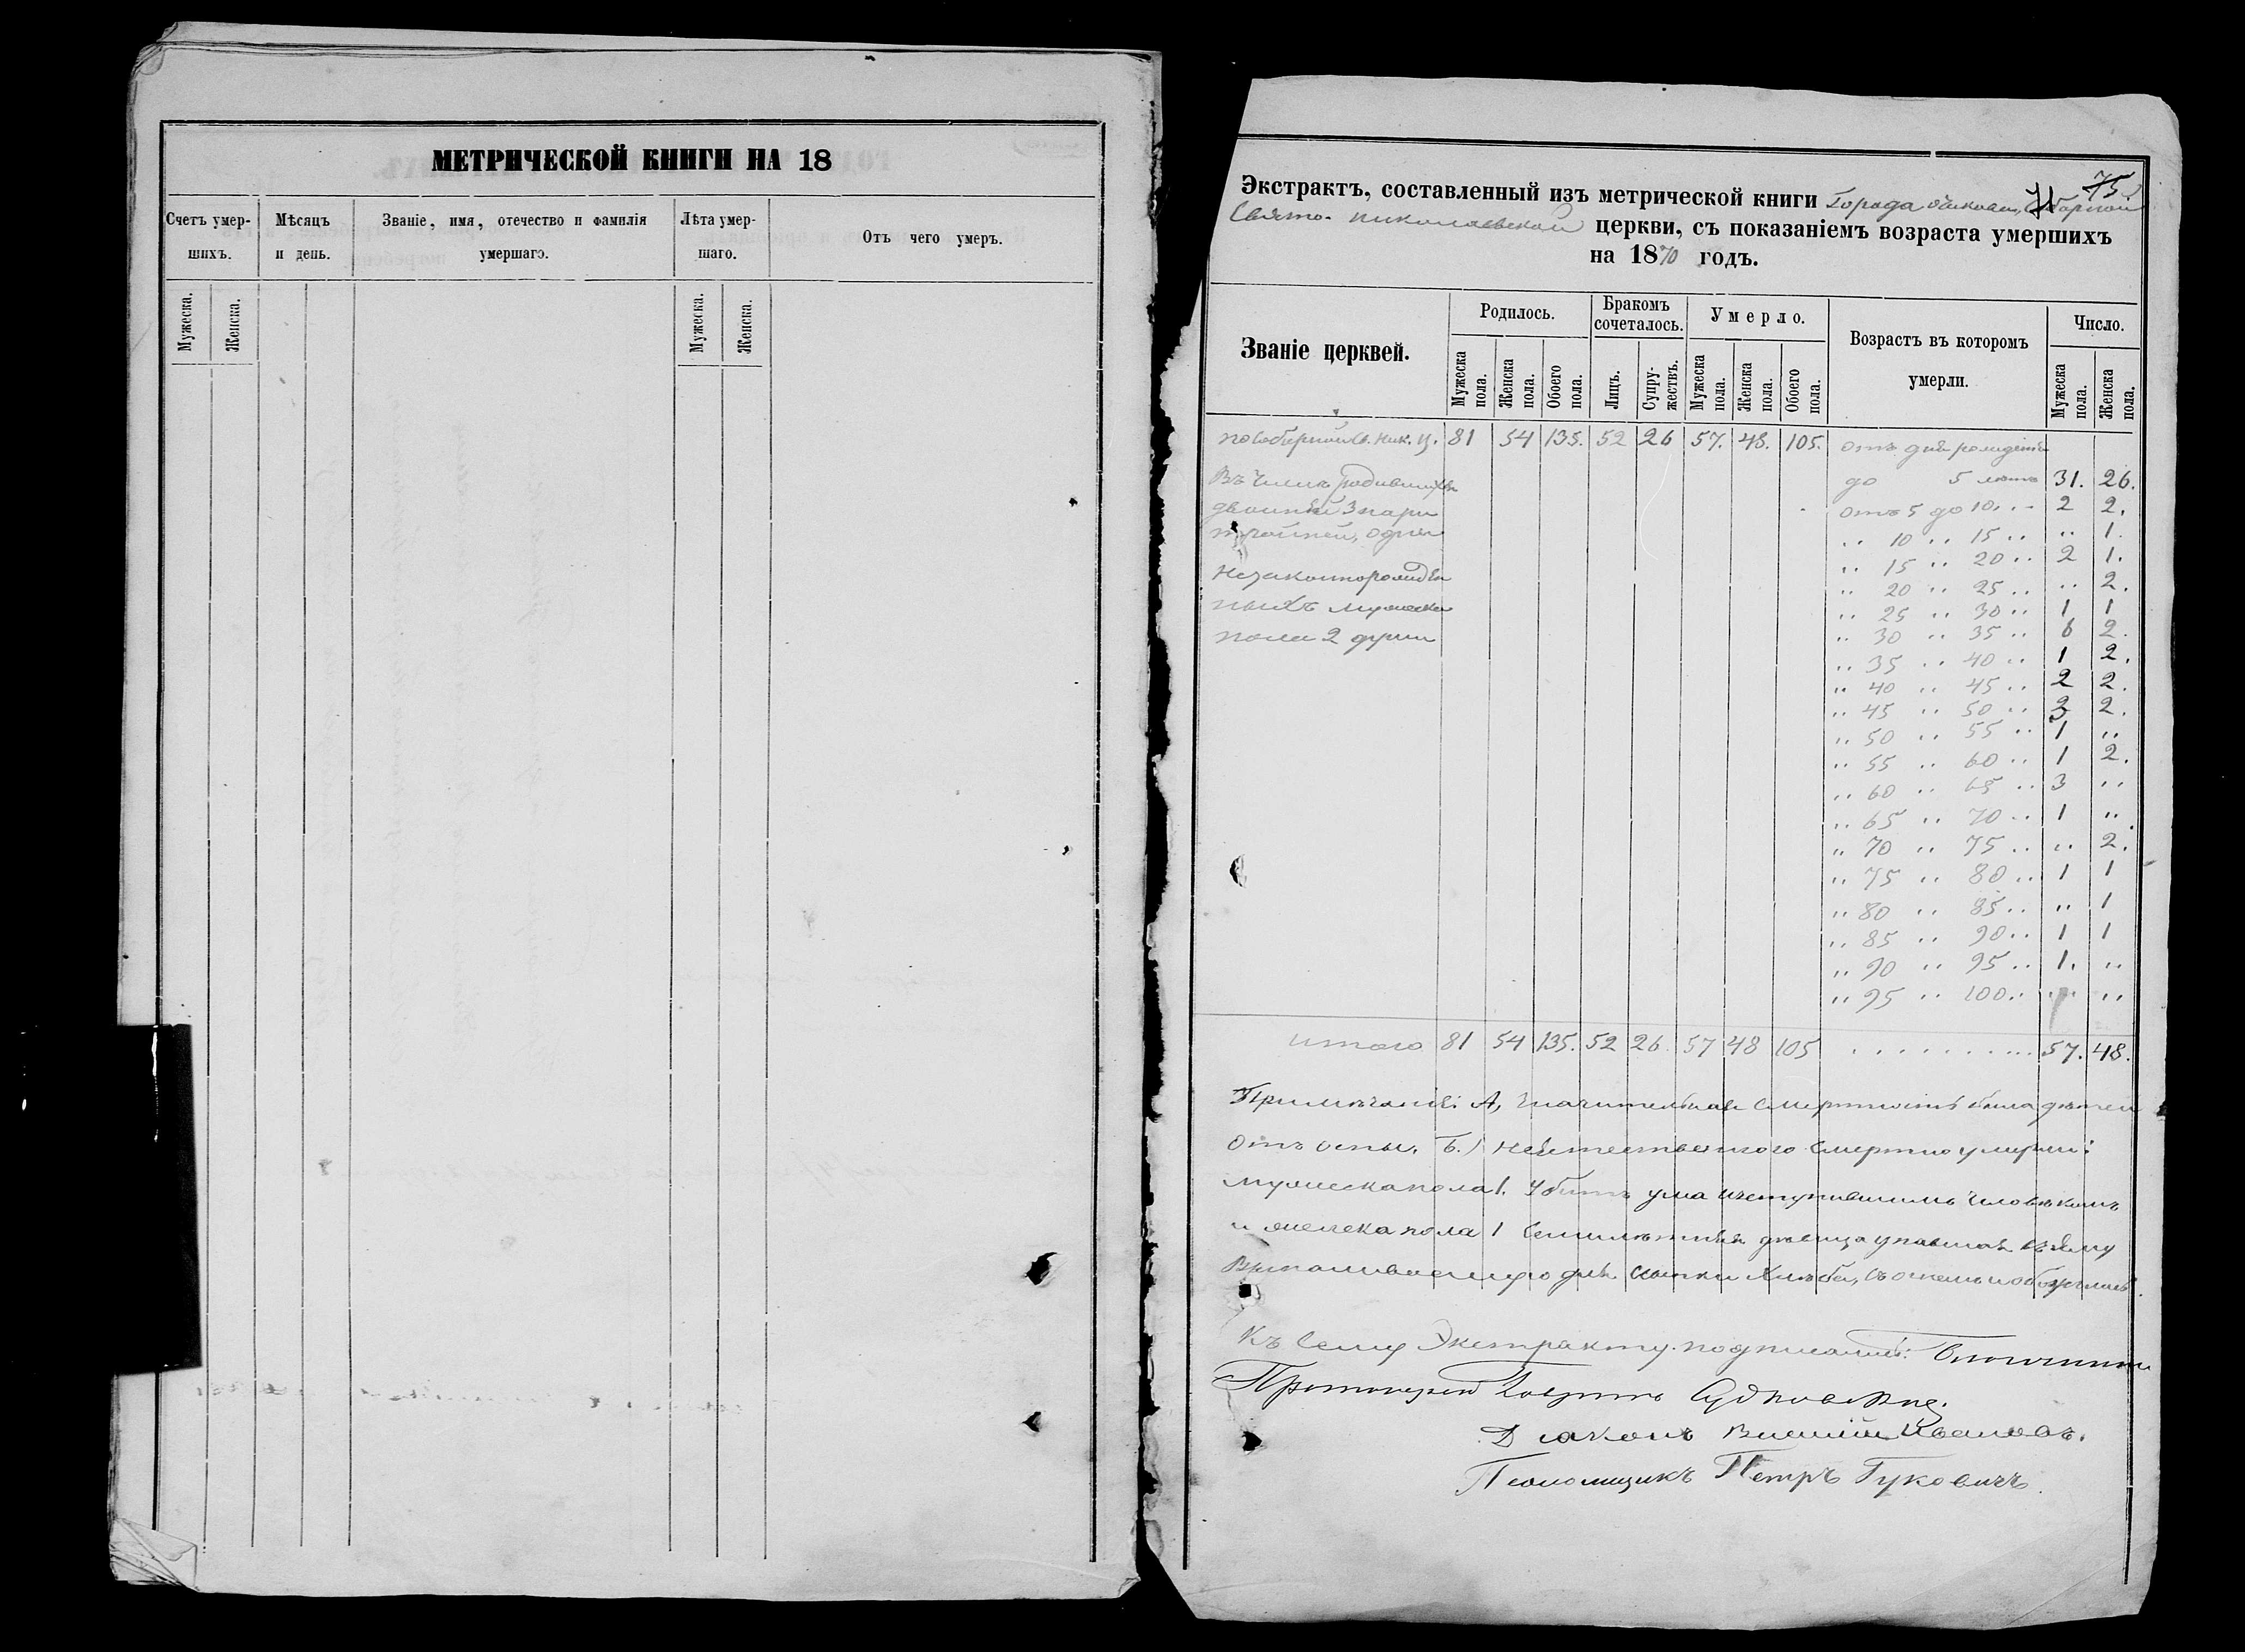 МЕТРИЧЕСКОЙ КНИГИ НА 18
Счетъ умер-
шихъ.
Мѣсяцъ
и день.
Званіе, имя, отечество и фамилія
умершаго.
Лѣта умер-
шаго.
Отъ чего умеръ.
Мужеска.
Женска.
Мужеска.
Женска.
75
Экстрактъ, составленный изъ метрической книги Города Очакова, Соборной
Свято-Николаевской церкви, съ показаніемъ возраста умершихъ
на 1870 годъ.
Званіе церквей.
Родилось.
Бракомъ
сочеталось.
Умерло.
Возрастъ въ которомъ
умерли.
Число.
Мужеска пола.
Женска пола.
Обоего пола.
Лицъ.
Супру-
жествъ.
Мужеска пола.
Женска пола.
Обоего пола.
Мужеска пола.
Женска пола.
По Соборной Св. Ник. ц. 81 54 135. 52 26 57. 48. 105. отъ дня рожденія
Въ числѣ родившихся до 5 лѣтъ 31. 26.
двойней 3 пары отъ 5 до 10 2 2.
тройней, одни „ 10 „ 15 „ 1.
„ 15 „ 20 2 1.
Незаконорожден „ 20 „ 25 „ 2.
ныхъ мужеска „ 25 „ 30 1 1
пола 2 души „ 30 „ 35 6 2.
„ 35 „ 40 1 2.
„ 40 „ 45 2 2.
„ 45 „ 50 3 2.
„ 50 „ 55 1 „
„ 55 „ 60 1 2.
„ 60 „ 65 3 „
„ 65 „ 70 1 „
„ 70 „ 75 „ 2.
„ 75 „ 80 1 1
„ 80 „ 85 „ 1
„ 85 „ 90 1 1
„ 90 „ 95 1. „
„ 95 „ 100 „ „
итого 81 54 135. 52 26 57 48 105 57. 48.
Примѣчаніе: А, значительная смертность была дѣтей
отъ оспы. Б.) неестественного смертію умерли:
мужеска пола 1. Убитъ ума изступившимъ человѣкомъ
и женска пола 1 семилѣтняя дѣвица упавшая въ яму
выпаливаемую для сыпки хлѣба, съ огнемъ и обозжглась.
Къ сему Экстракту подписались: Благочинный
Протоіерей Судковскій.
Діаконъ Ивановъ.
Пономщикъ Петръ Гуковичъ.